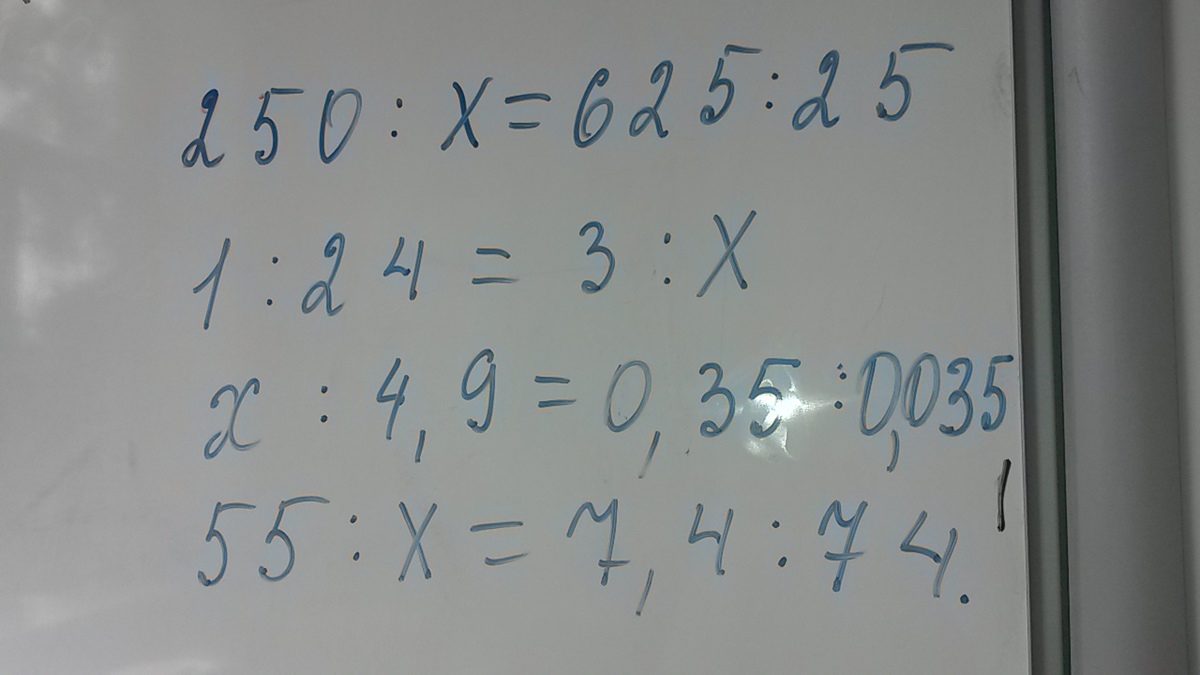 250 : x = 625 : 25
1 : 24 = 3 : x
x : 4,9 = 0,35 : 0,035
55 : x = 7,4 : 74.